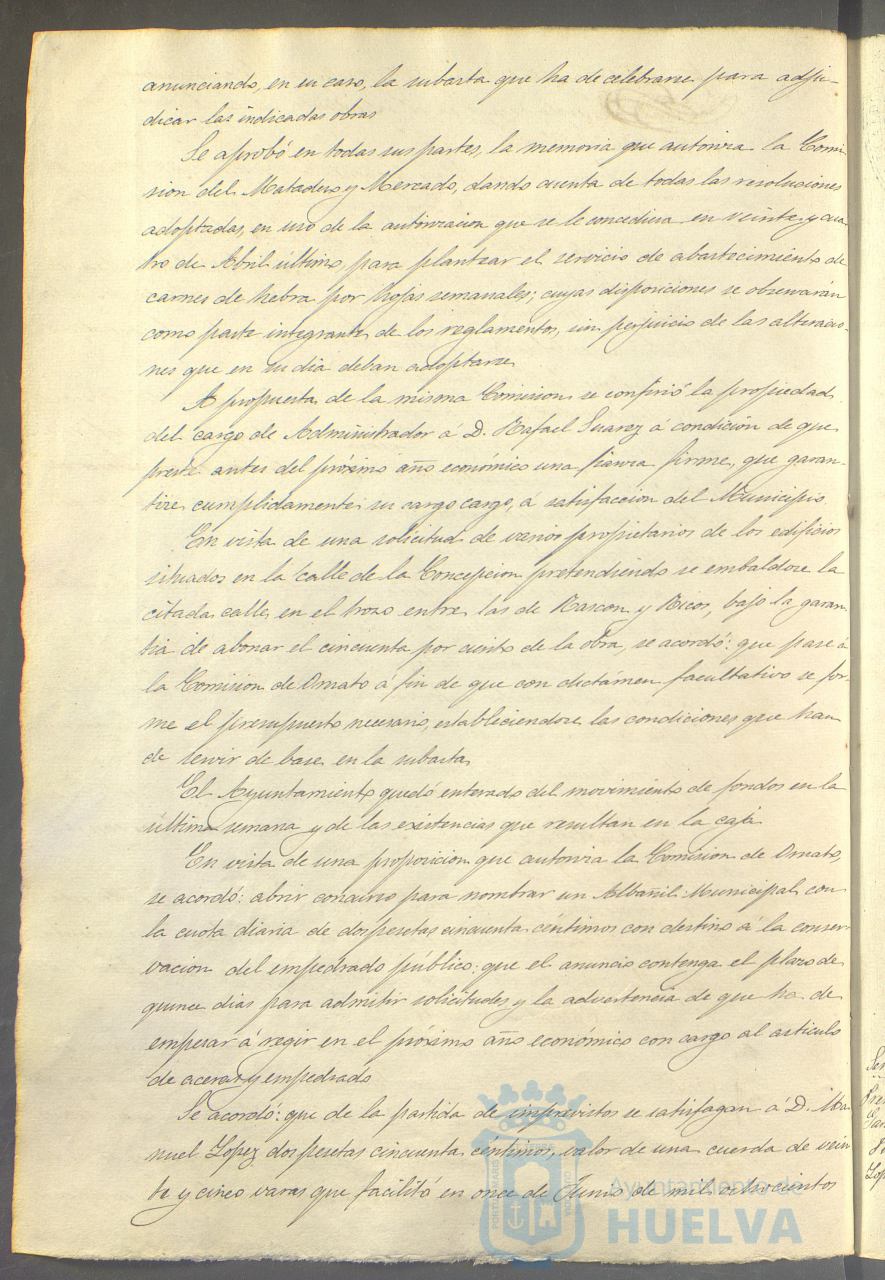 anunciando, en su caso, la subasta que ha de celebrarse para adju-
dicar las indicadas obras
Se aprobó en todas sus partes, la memoria que autoriza la Comi-
sion del Matadero y Mercado, dando cuenta de todas las resoluciones
adoptadas, en uso de la autorizacion que se le concediera en veinte y cua-
tro de Abril último, para plantear el servicio de abastecimiento de
carnes de hebra por hojas semanales; cuyas disposiciones se observarán
como parte integrante de los reglamentos, sin perjuicio de las alteracio-
nes que en su dia deban adoptarse
A propuesta de la misma Comision se confirió la propiedad
del cargo de Administrador á D. Rafael Suarez á condición de que
preste antes del próximo año económico una fianza firme, que garan-
tize cumplidamente su cargo cargo, á satisfaccion del Municipio
En vista de una solicitud de varios propietarios de los edificios
situados en la calle de la Concepcion pretendiendo se embaldose la
citada calle, en el trozo entre las de Rascon y Ricos, bajo la garan-
tia de abonar el cincuenta por ciento de la obra, se acordó: que pase á
la Comision de Ornato á fin de que con dictámen facultativo se for-
me el presupuesto necesario, estableciendose las condiciones que han
de servir de base en la subasta
El Ayuntamiento quedó enterado del movimiento de fondos en la
última semana y de las existencias que resultan en la caja
En vista de una proposicion que autoriza la Comision de Ornato,
se acordó: abrir concurso para nombrar un Albañil Municipal con
la cuota diaria de dos pesetas cincuenta céntimos con destino á la conser-
vacion del empedrado público; que el anuncio contenga el plazo de
quince dias para admitir solicitudes y la advertencia de que ha de
empesar á regir en el próximo año económico con cargo al articulo
de aceras y empedrado
Se acordó: que de la partida de imprevistos se satisfagan á D. Ma-
nuel Lopez dos pesetas cincuenta céntimos, valor de una cuerda de vein-
te y cinco varas que facilitó en once de Junio de mil ochocientos
Ayuntamiento de
HUELVA